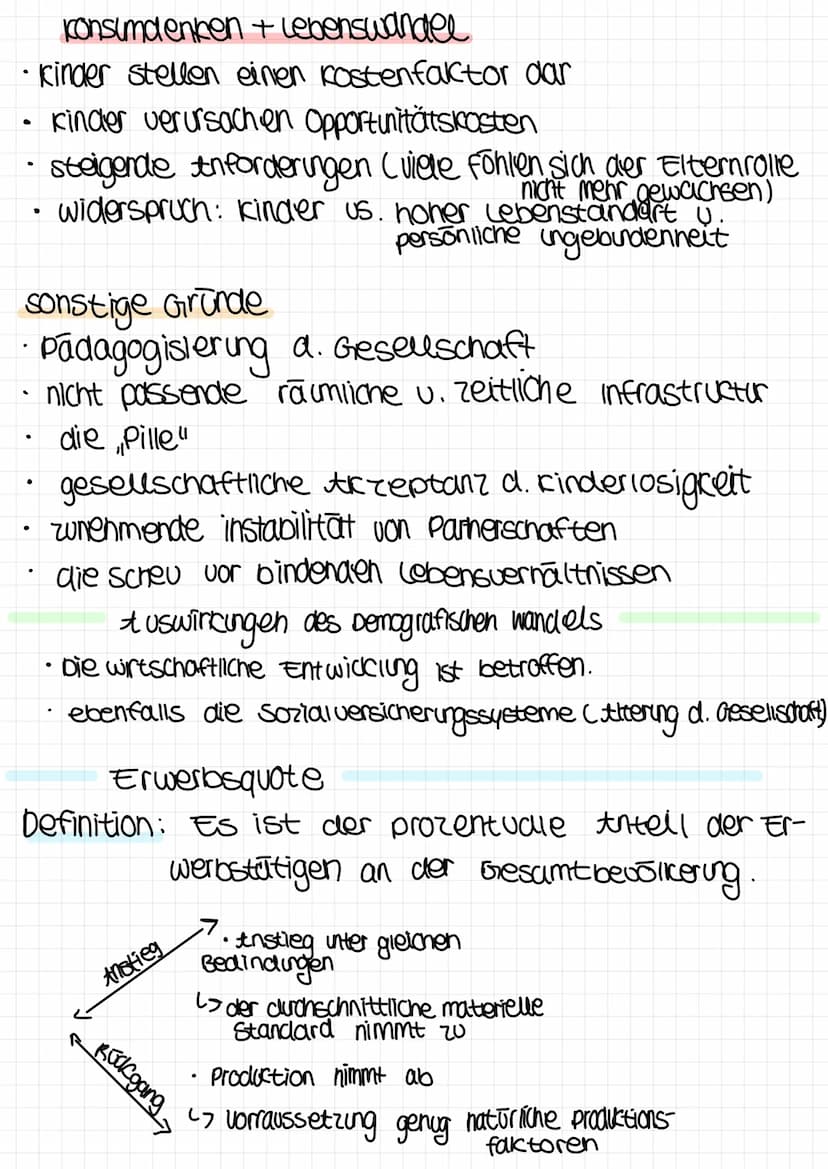 Konsumdenken + Lebenswandel
· Kinder stellen einen Kostenfaktor dar
· Kinder verursachen Opportunitätskosten
· steigende Anforderungen (viele fühlen sich der Elternrolle
nicht mehr gewachsen)
· Widerspruch: Kinder vs. hoher Lebenstandart u.
persönliche Ungebundenheit
sonstige Gründe
· Pädagogisierung d. Gesellschaft
· nicht passende räumliche u. zeitliche Infrastruktur
· die „Pille"
· gesellschaftliche Akzeptanz d. Kinderlosigkeit
· zunehmende Instabilität von Partnerschaften
· die Scheu vor bindenden Lebensverhältnissen
Auswirkungen des Demografischen Wandels
· Die wirtschaftliche Entwicklung ist betroffen.
· ebenfalls die Sozialversicherungssysteme (Alterung d. Gesellschaft)
Erwerbsquote
Definition: Es ist der prozentualle Anteil der Er-
werbstätigen an der Gesamtbevölkerung.
Anstieg
· Anstieg unter gleichen
Bedindungen
↳ der durchschnittliche materielle
Standard nimmt zu
Rückgang
· Production nimmt ab
↳ Vorraussetzung genug natürliche Produktions-
faktoren